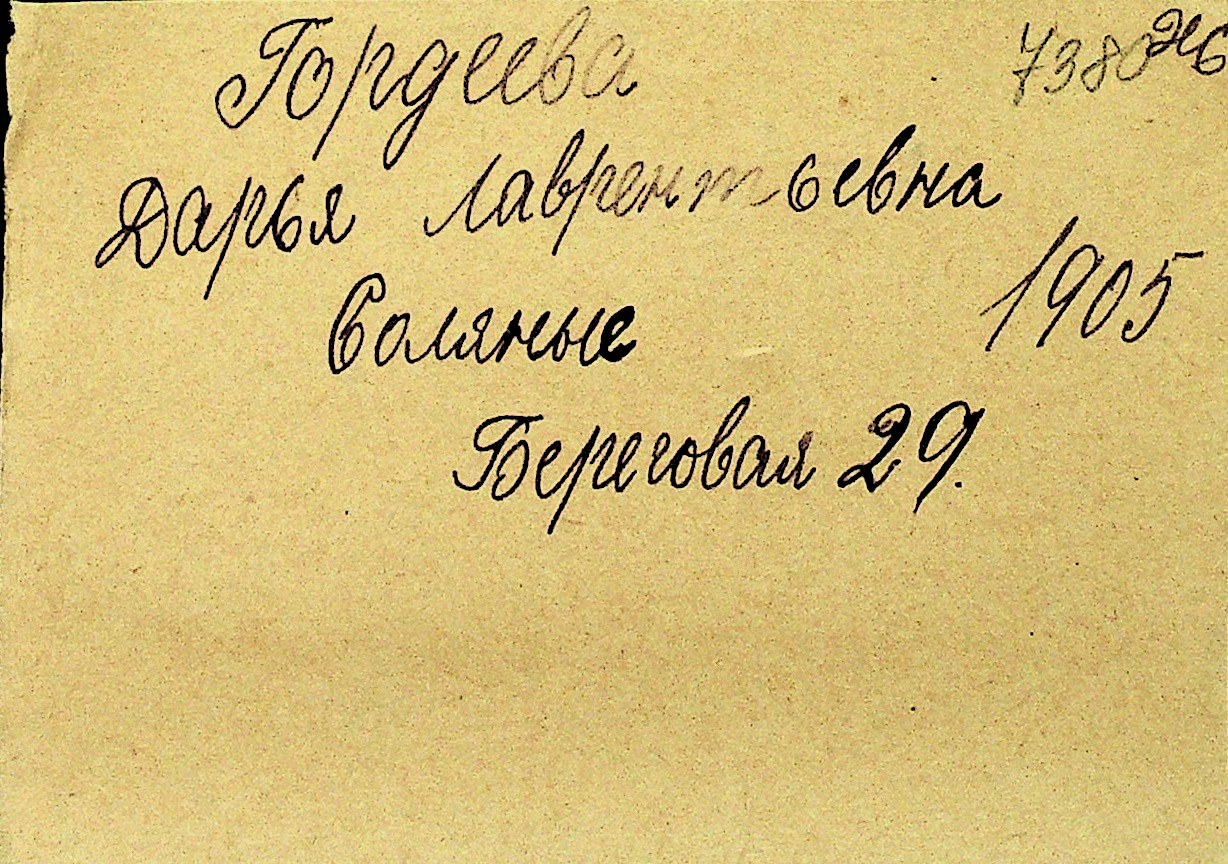 Гордеева 7380
Дарья Лаврентьевна
Соляные 1905
Береговая 29.